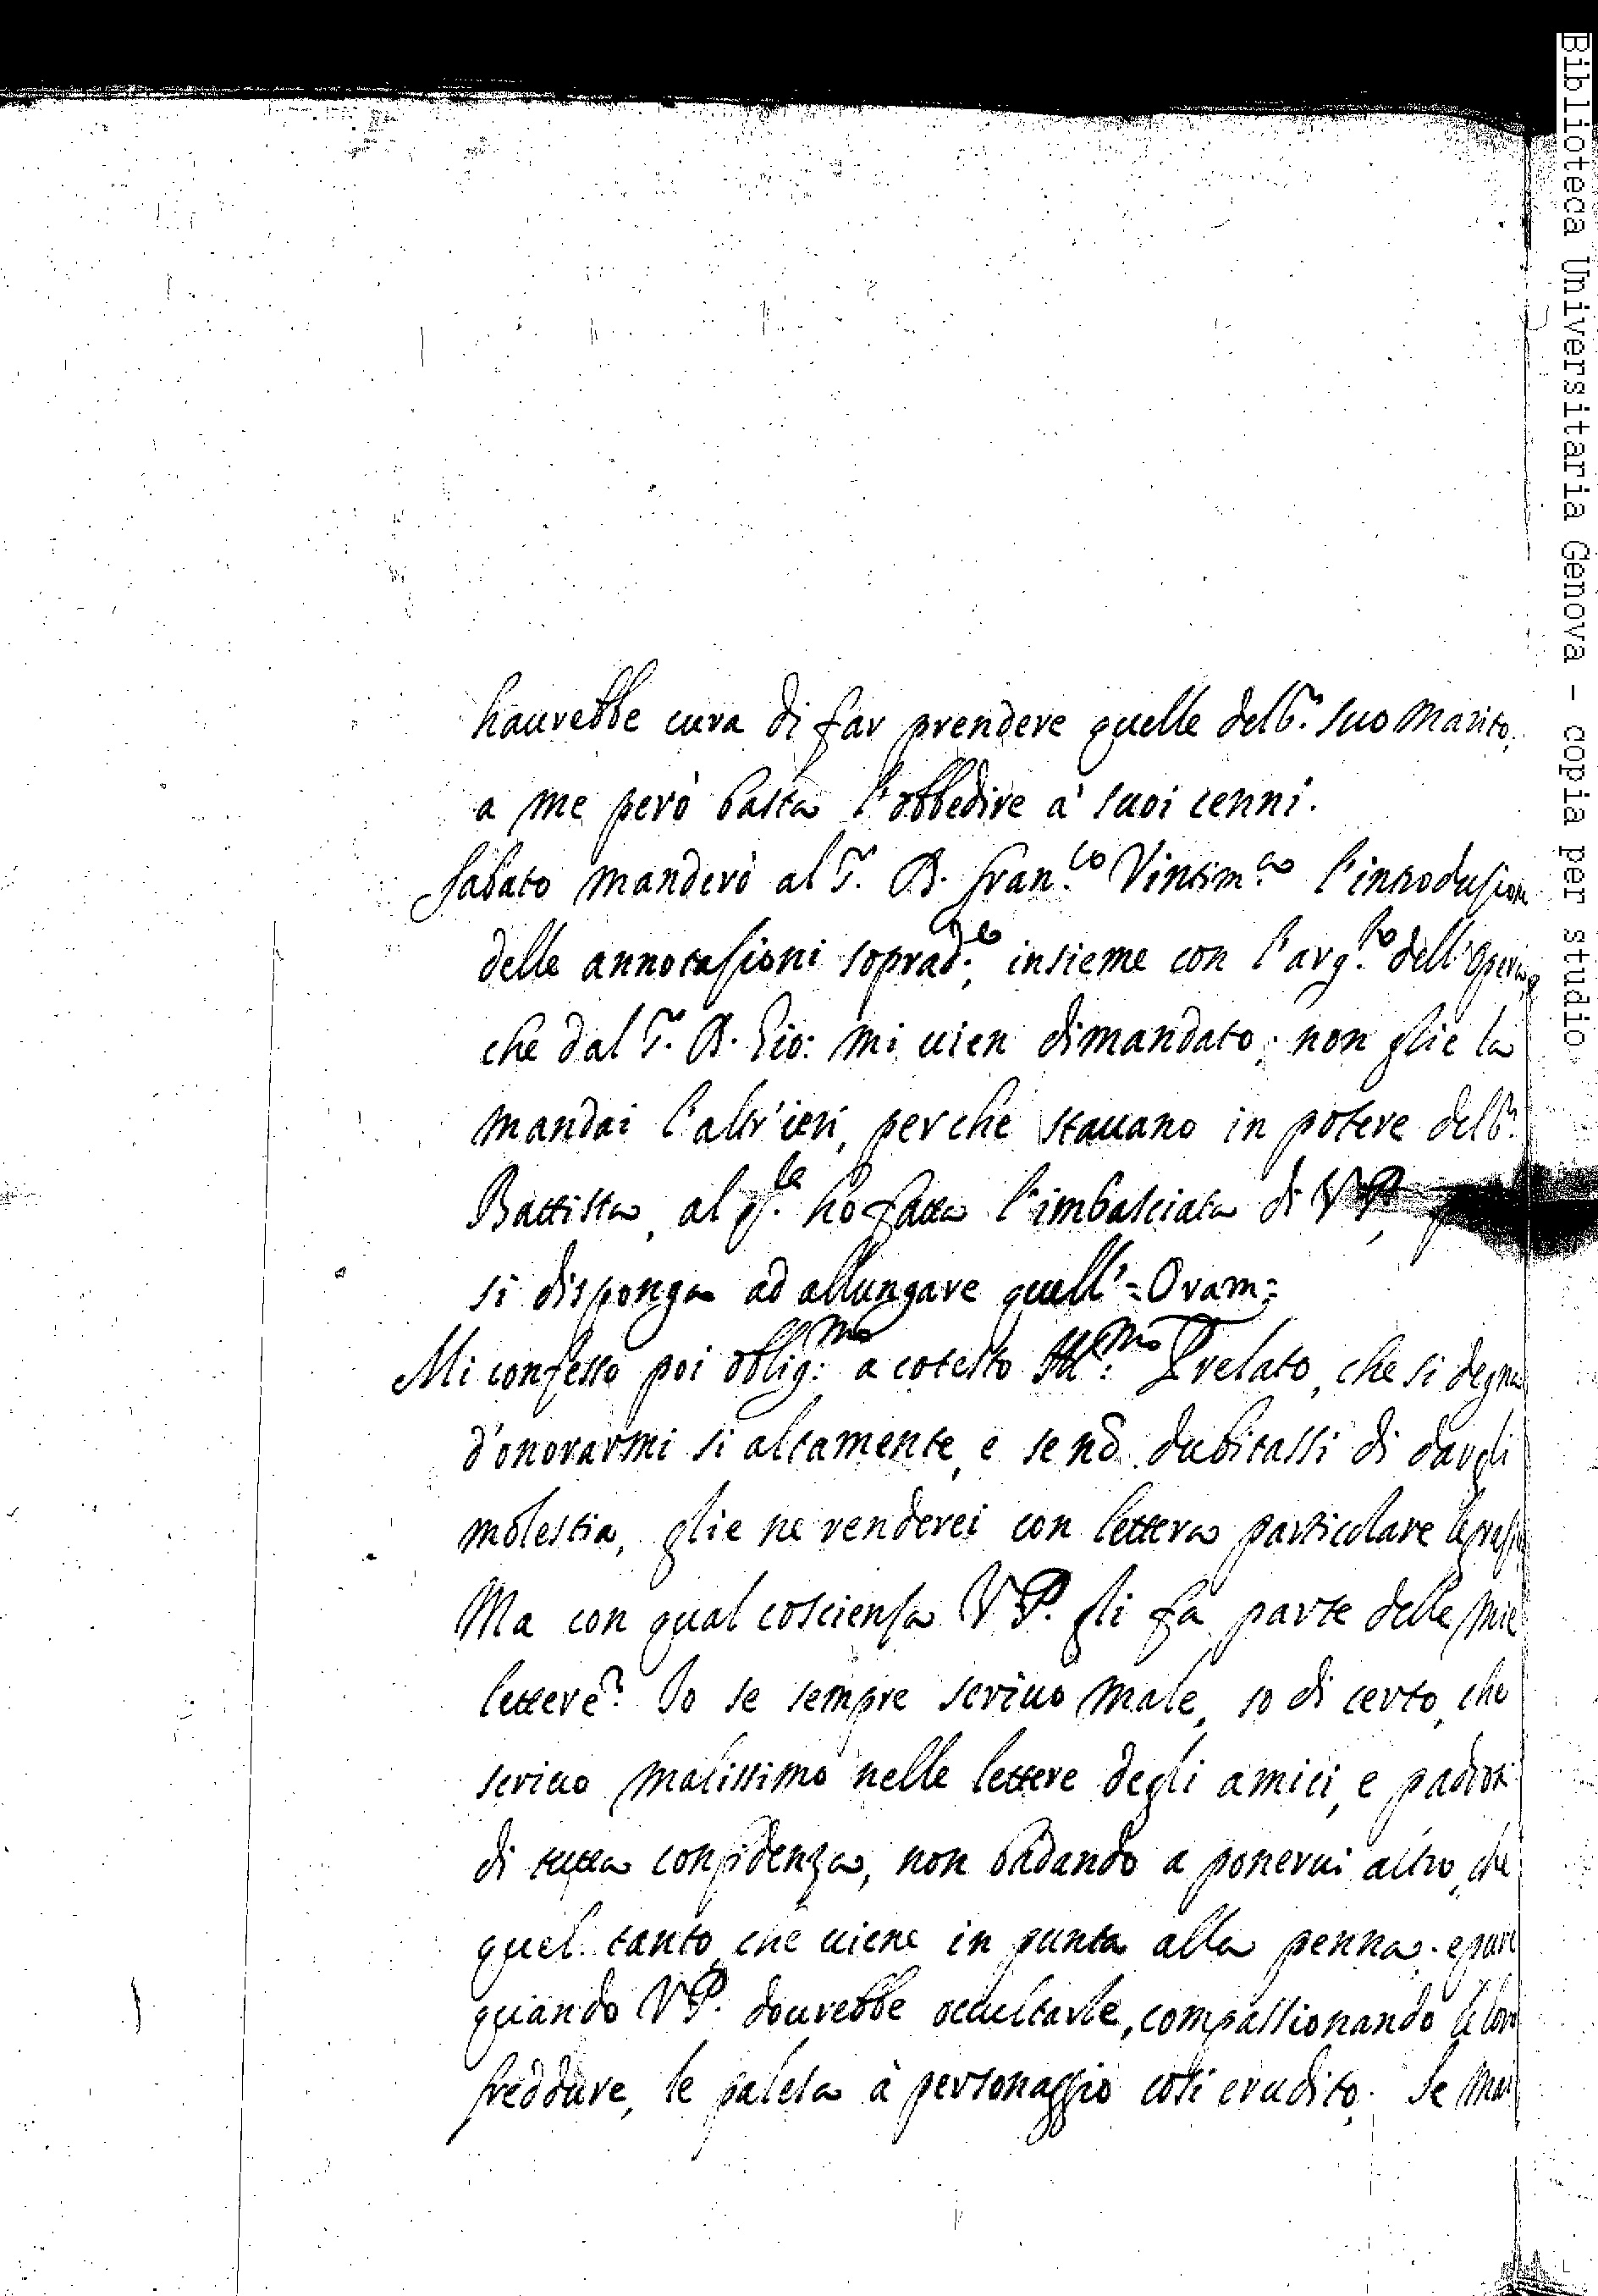 haurebbe cura di far prendere quelle del S.r suo Marito,
a me però basta l'obbedire a' suoi cenni.
Sabato manderò al S.r D. Fran.co Vintim.a l'introdusione
delle annotasioni soprad.e, insieme con l'arg.to dell'Opera,
che dal S.r D. Gio: mi uien dimandato; non glie la
mandai l'altr'ieri, perche stauano in potere del S.r
Battista, al q.le ho fatta l'imbasciata di V P,
si disponga ad allungare quell'=Oram=
Mi confesso poi oblig:mo a cotesto Ill:mo Prelato, che si degna
d'onorarmi si altamente, e se nõ dubitassi di dargli
molestia, glie ne renderei con lettera particolare le grasie
Ma con qual cosciensa V P. gli fa parte delle mie
lettere? Io se sempre scriuo male, so di certo, che
scriuo malissimo nelle lettere degli amici, e padroni
di tutta confidenza, non badando a ponerui altro, che
quel tanto che uiene in punta alla penna. e pure
quando V P. dourebbe occultarle, compassionando le loro
freddure, le palesa à personaggio così erudito. Se mai
Biblioteca Universitaria Genova - copia per studio